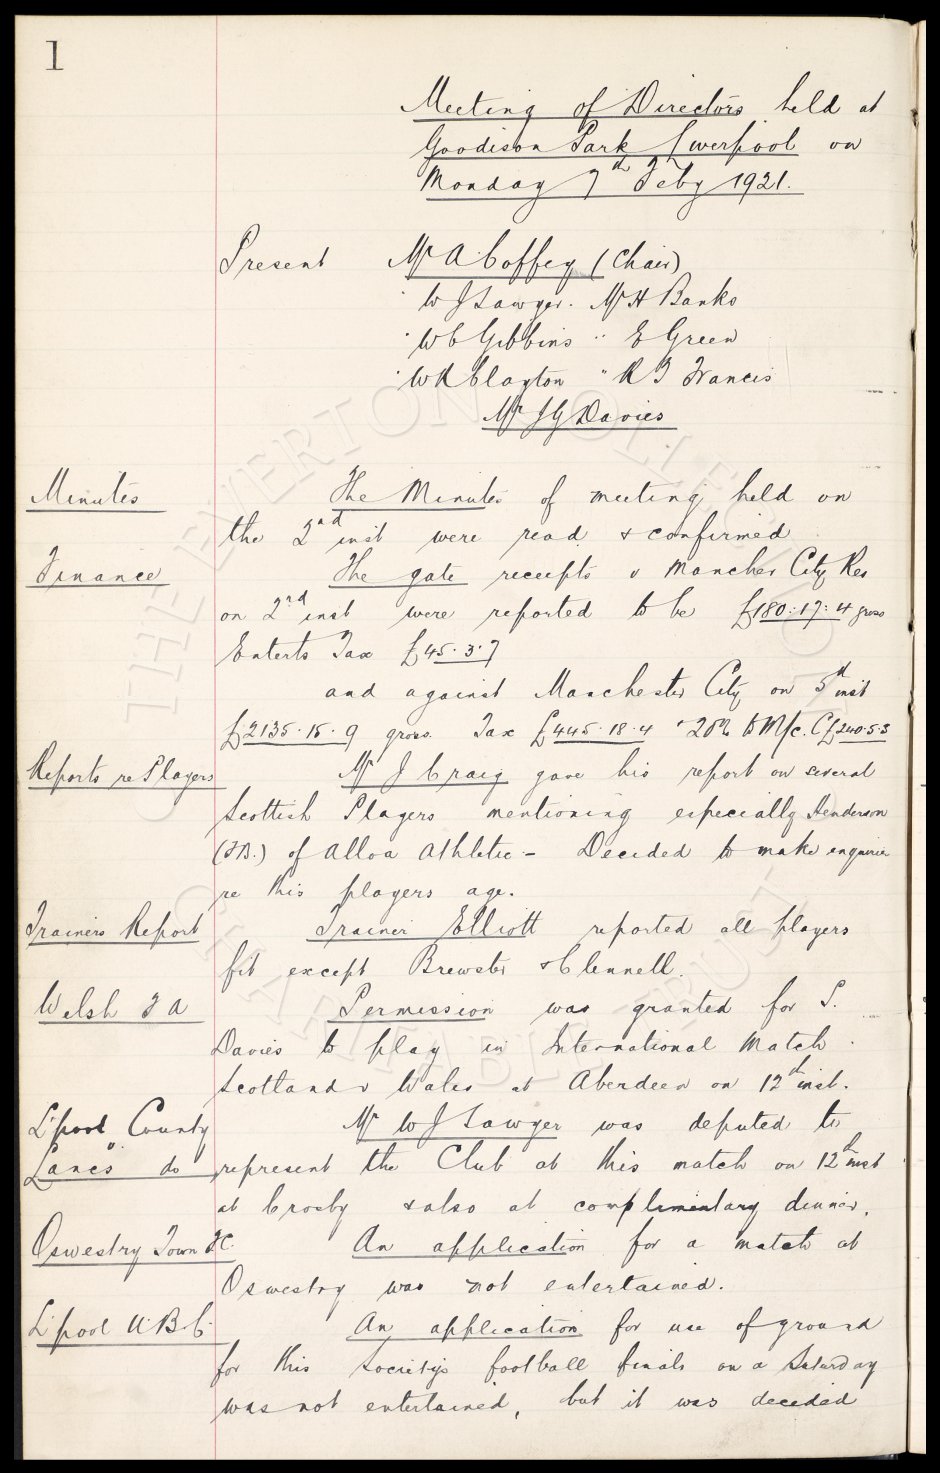 1
Meeting of Directors held at
Goodison Park Liverpool on
Monday 7th Feby 1921.
Present Mr A Coffey (Chair)
" W J Sawyer. Mr H Banks
" W C Gibbins " E Green
" W R Clayton " R T Francis
Mr J G Davies
Minutes The Minutes of meeting held on
the 2nd inst were read & confirmed
Finance The gate receipts v Manches City Res
on 2nd inst were reported to be £180:17:4 gross
Enterts Tax £45.3.7
and against Manchester City on 5th inst
£2135.15.9 gross. Tax £445.18.4 20% to M/c. C £240.5.3
Reports re Players Mr J Craig gave his report on several
Scottish Players mentioning especially Henderson
(FB.) of Alloa Athletic - Decided to make enquiries
re this players age.
Trainers Report Trainer Elliott reported all players
fit except Brewster & Clennell.
Welsh F A Permission was granted for S.
Davies to play in International Match
Scotland v Wales at Aberdeen on 12th inst.
L'pool County Mr W J Sawyer was deputed to
Lancs " do represent the Club at this match on 12th inst
at Crosby & also at complimentary dinner.
Oswestry Town F.C. An application for a match at
Oswestry was not entertained.
L'pool U.B.C. An application for use of ground
for this Society's football finals on a Saturday
was not entertained, but it was decided
THE EVERTON COLLECTION
CHARITABLE TRUST